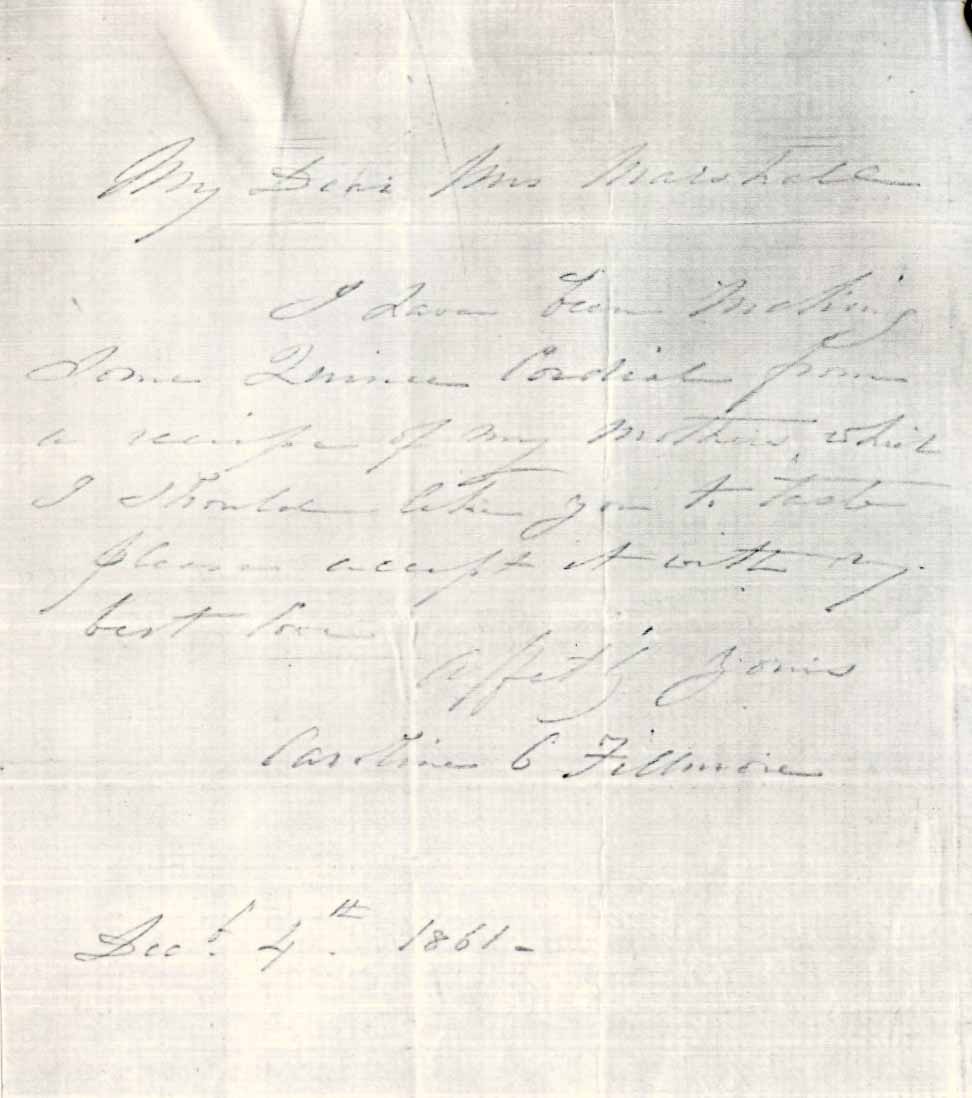 My Dear Mrs Marshall
I have been making
some Quince Cordial from
a recipe of my mothers, which
I should like you to taste
please accept it with my
best love
Affetly yours
Caroline C Fillmore
Decr. 4th. 1861-